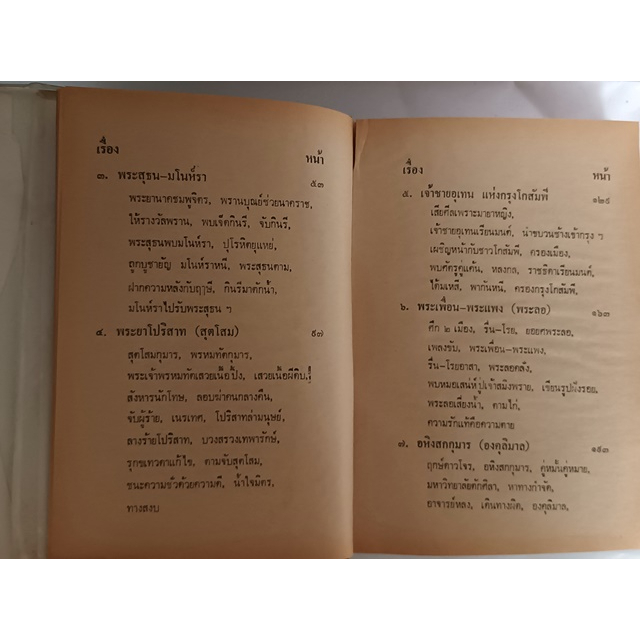 เรื่อง
หน้า
๓. พระสุธน-มโนห์รา ๕๓
พระยานาคชมพูจิตร, พรานบุณย์ช่วยนาคราช,
ให้รางวัลพราน, พบเจ็ดกินรี, จับกินรี,
พระสุธนพบมโนห์รา, ปุโรหิตยุแหย่,
ถูกบูชายัญ มโนห์ราหนี, พระสุธนตาม,
ฝากความหลังกับฤๅษี, กินรีมาตักน้ำ,
มโนห์ราไปรับพระสุธน ฯ
๔. พระยาโปริสาท (สุตโสม) ๙๗
สุตโสมกุมาร, พรหมทัตกุมาร,
พระเจ้าพรหมทัตเสวยเนื้อปิ้ง, เสวยเนื้อผีดิบ!
สังหารนักโทษ, ลอบฆ่าคนกลางคืน,
จับผู้ร้าย, เนรเทศ, โปริสาทล่ามนุษย์,
ล้างร้ายโปริสาท, บวงสรวงเทพารักษ์,
รุกขเทวดาแก้ไข, ตามจับสุตโสม,
ชนะความชั่วด้วยความดี, น้ำใจมิตร,
ทางสงบ
เรื่อง
หน้า
๕. เจ้าชายอุเทน แห่งกรุงโกสัมพี ๑๒๙
เสียศีลเพราะมายาหญิง,
เจ้าชายอุเทนเรียนมนต์, นำขบวนช้างเข้ากรุง ฯ
เผชิญหน้ากับชาวโกสัมพี, ครองเมือง,
พบศัตรูคู่แค้น, หลงกล, ราชธิดาเรียนมนต์,
ได้มเหสี, พากันหนี, ครองกรุงโกสัมพี,
๖. พระเพื่อน-พระแพง (พระลอ) ๑๖๓
ศึก ๒ เมือง, รื่น-โรย, ยอยศพระลอ,
เพลงขับ, พระเพื่อน-พระแพง,
รื่น-โรยอาสา, พระลอคลั่ง,
พบหมอเสน่ห์ปู่เจ้าสมิงพราย, เขียนรูปฝังรอย,
พระลอเสี่ยงน้ำ, ตามไก่,
ความรักแท้คือความตาย
๗. อหิงสกกุมาร (องคุลิมาล) ๑๙๓
ฤกษ์ดาวโจร, อหิงสกกุมาร, คู่หมั้นคู่หมาย,
มหาวิทยาลัยตักศิลา, หาทางกำจัด,
อาจารย์หลง, เดินทางผิด, องคุลิมาล,